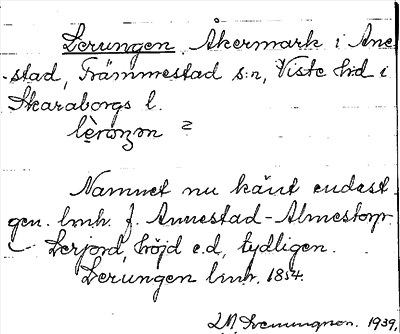 Lerungen Åkermark i Anne-
stad, Främmestad s:n, Viste hd i
Skaraborgs l.
lèronzm
Namnet nu känt endast
gen. lmh. f. Annestad-Almestorp.
Lerjord, höjd e.d., tydligen.
Lerungen lmh. 1854.
1939.